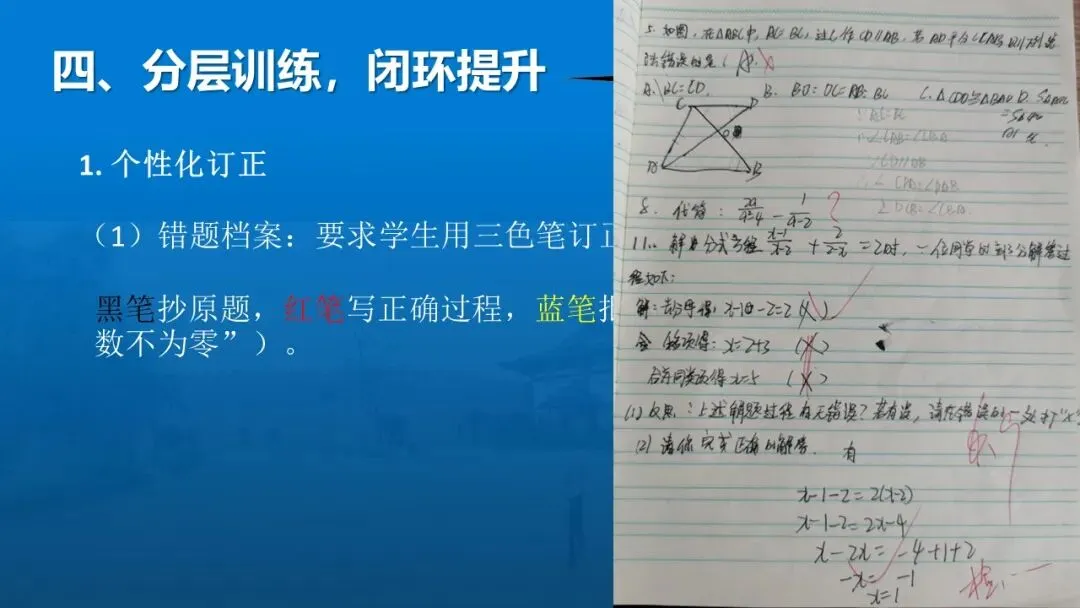 四、分层训练，闭环提升
1. 个性化订正
（1）错题档案：要求学生用三色笔订正
黑笔抄原题，红笔写正确过程，蓝笔批
数不为零”）。
5. 如图，在△ABC中，AC=BC，过C作CD∥AB，若AD平分∠CAB
法错误的是(
A. BC=CD. B. BO:OC=AB:BC C. △CDO≌△BAO D.
C D
O
B
∵AC=BC
∴∠CAB=∠CBA
∵CD∥AB
∴∠CDA=∠DAB
∠DCB=∠CBA
8. 化简: 2a/a²-4 - 1/a-2
11. 解分式方程 x-1/x-2 + 2/2-x = 2时，一位同学的部分解答过
程如下:
解:去分母得, x-1-2=2 (X)
移项得: x=2+3 (X)
合并同类项得 x=5 (X)
(1) 上述解题过程有无错误? 若有误，请在错误的一处打"×"
(2) 请你完成正确的解答. 有
x-1-2=2(x-2)
x-1-2=2x-4
x-2x=-4+1+2
-x=-1
x=1